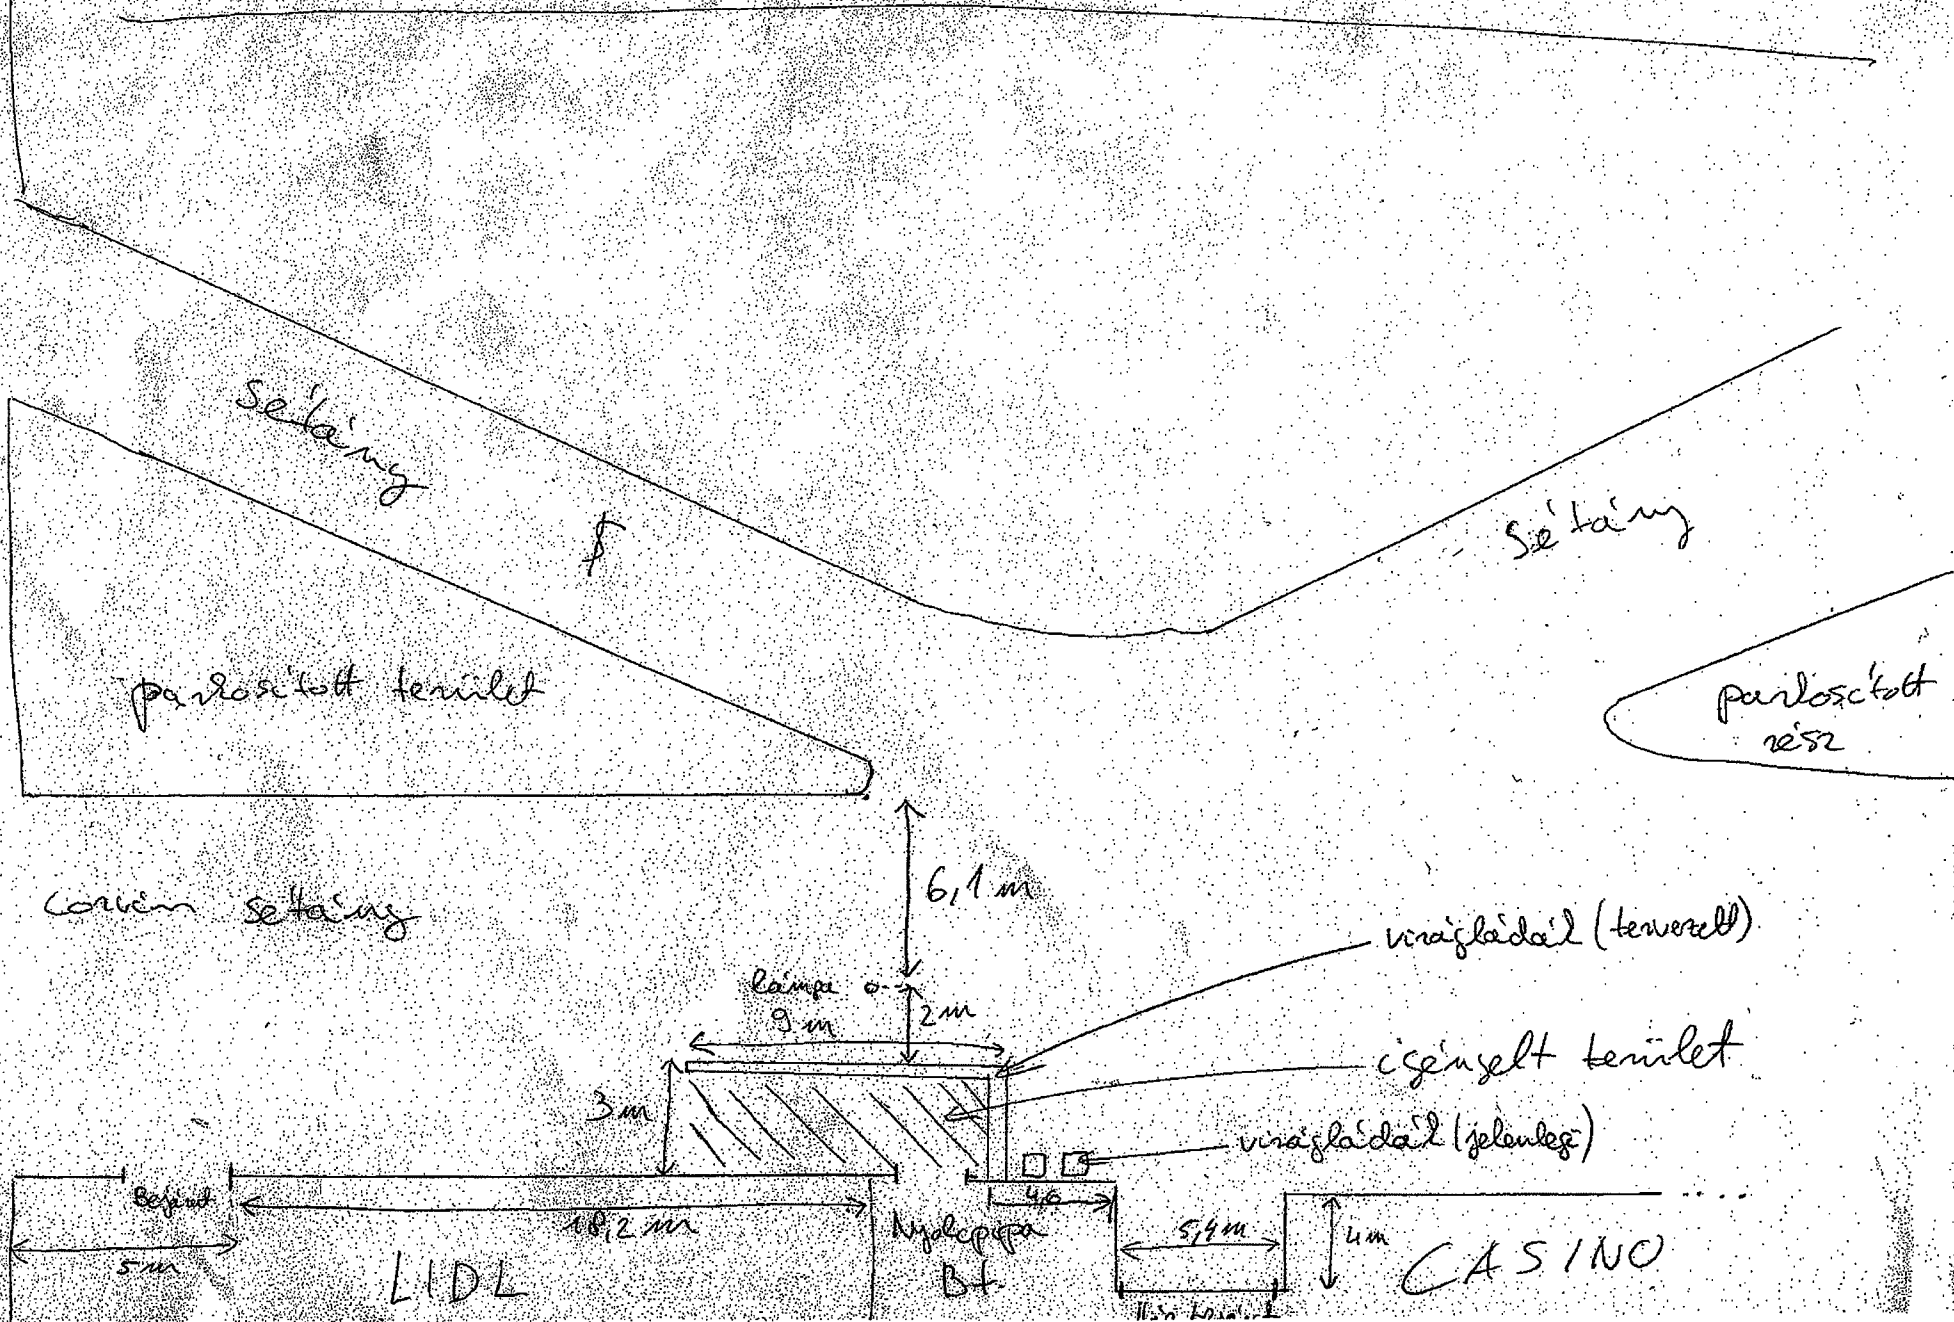 sétány
sétány
parkosított terület
parkosított
rész
6,1 m
corvin sétány
virágládák (tervezett)
lámpa
2 m
9 m
igényelt terület
3 m
virágládák (jelenlegi)
Bejárat
4,6
18,2 m
5,4 m
4 m
5 m
LIDL
Bt.
CASINO